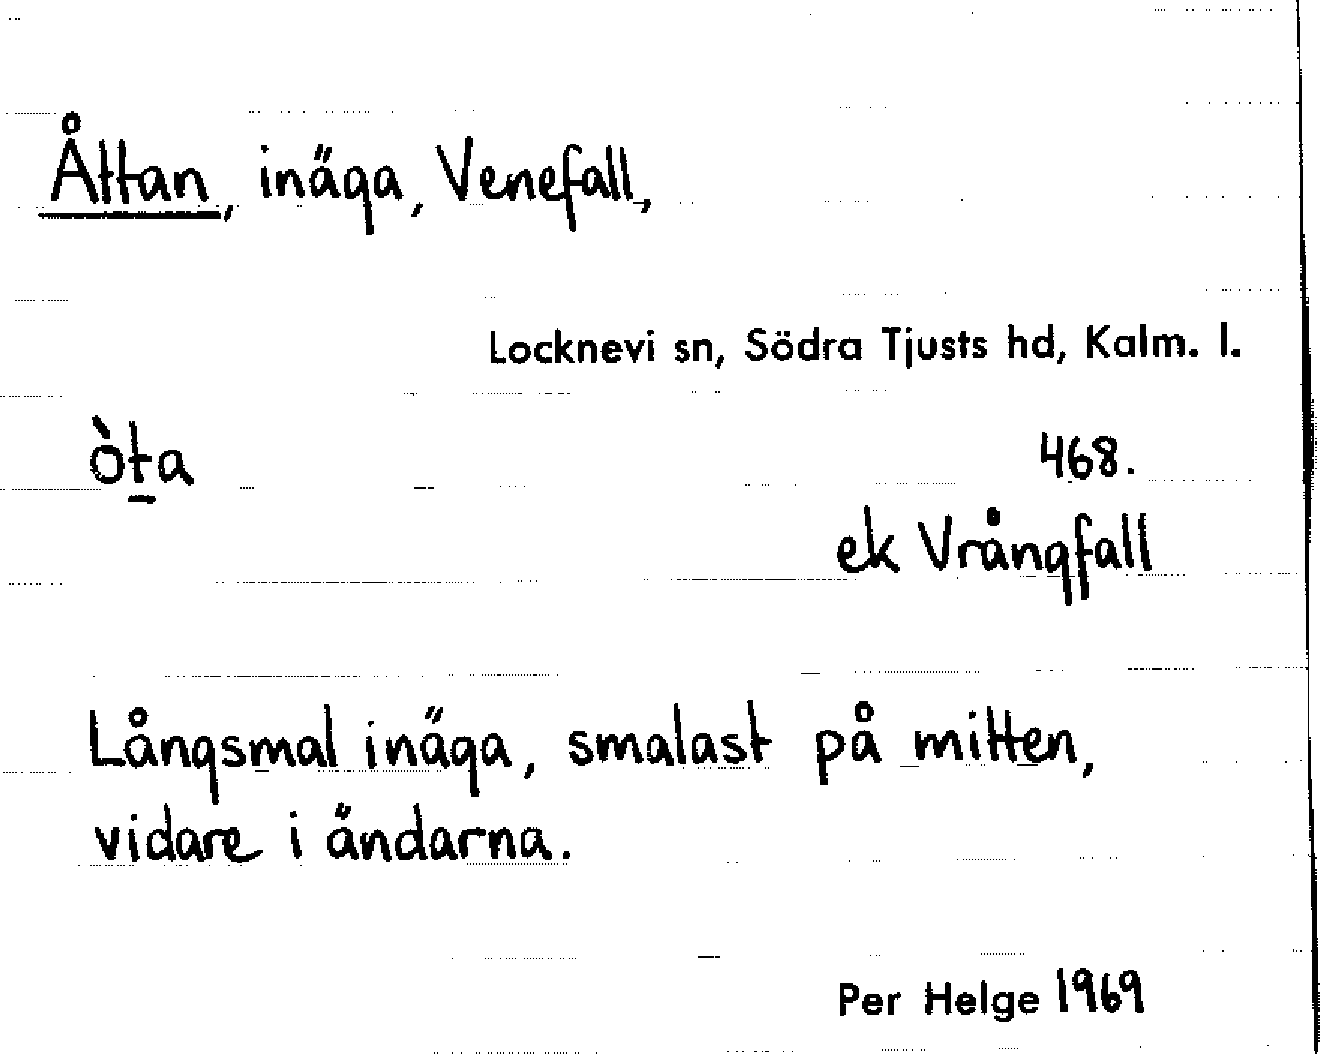 Åttan, inäga, Venefall,
Locknevi sn, Södra Tjusts hd, Kalm. l.
òt̲a
468.
ek Vrångfall
Långsmal inäga, smalast på mitten,
vidare i ändarna.
Per Helge 1969